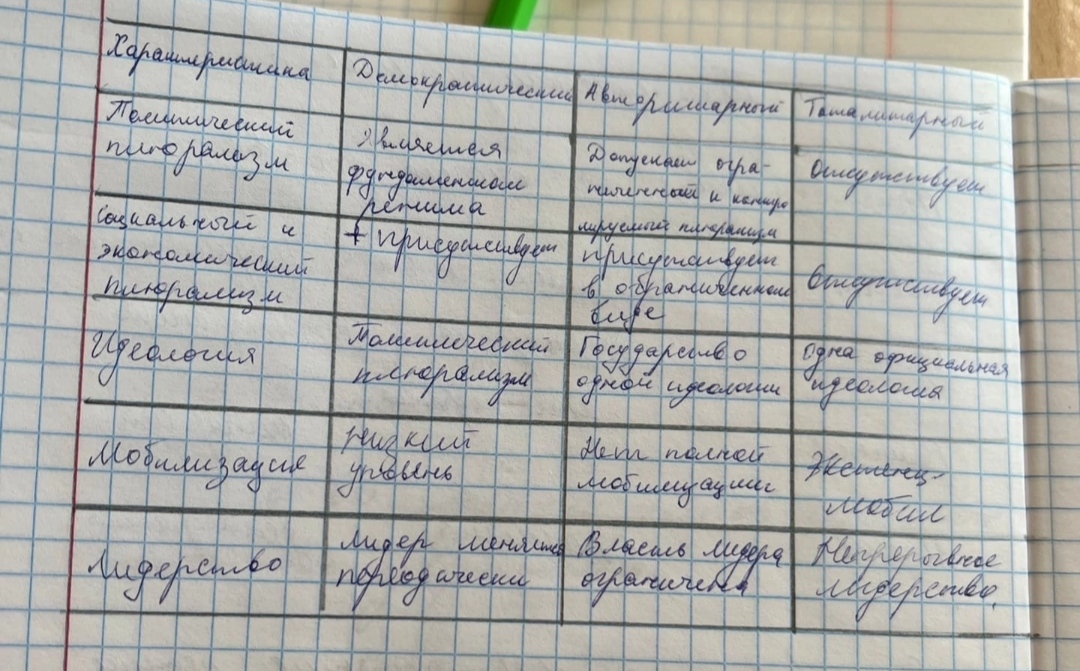 Характеристика
Демократический
Авторитарный
Тоталитарный
Политический
плюрализм
является
фундаментом
режима
Допускает огра-
ниченный и контро
лируемый плюрализм
Отсутствует
Социальный и
экономический
плюрализм
присутствует
присутствует
в ограниченном
виде
Отсутствует
Идеология
Политический
плюрализм
Государство
одной идеологии
одна официальная
идеология
Мобилизация
Низкий
уровень
Нет полной
мобилизации
Экстенц-
мобил
Лидерство
Лидер меняется
переодически
Власть лидера
ограничена
Непрерывное
лидерство.